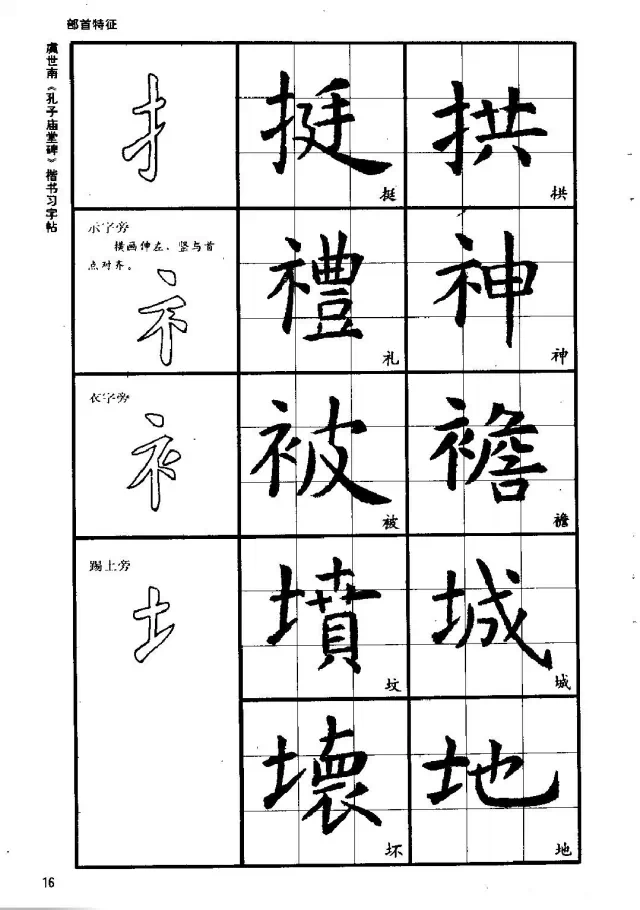 部首特征
虞世南《孔子庙堂碑》楷书习字帖
扌 挺 拱
挺 拱
示字旁
横画伸左，竖与首
点对齐。
礻 禮 神
礼 神
衣字旁
衤 被 襜
被 襜
踢土旁
土 墳 城
坟 城
壞 地
坏 地
16